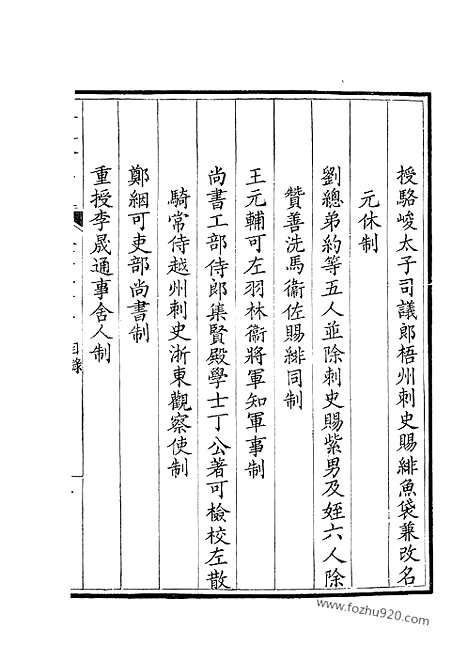 授駱峻太子司議郎梧州刺史賜緋魚袋兼改名
元休制
劉總弟約等五人並除刺史賜紫男及姪六人除
贊善洗馬衛佐賜緋同制
王元輔可左羽林衛將軍知軍事制
尚書工部侍郎集賢殿學士丁公著可檢校左散
騎常侍越州刺史浙東觀察使制
鄭絪可吏部尚書制
重授李晟通事舍人制
目錄
www.fozhu920.com